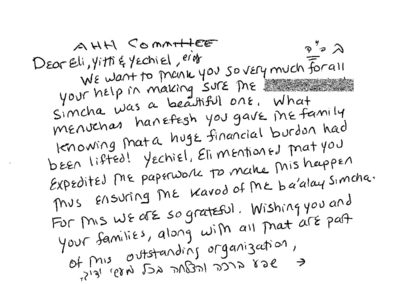 AHH Committee
Dear Eli, Yitti & Yechiel,
We want to thank you so very much for all
your help in making sure the
Simcha was a beautiful one. What
menuchas hanefesh you gave the family
knowing that a huge financial burdon had
been lifted! Yechiel, Eli mentioned that you
expedited the paperwork to make this happen
thus ensuring the kavod of the ba'alay simcha.
For this we are so grateful. Wishing you and
your families, along with all that are part
of this outstanding organization,
שפע ברכה והצלחה בכל מעשי ידיך. →